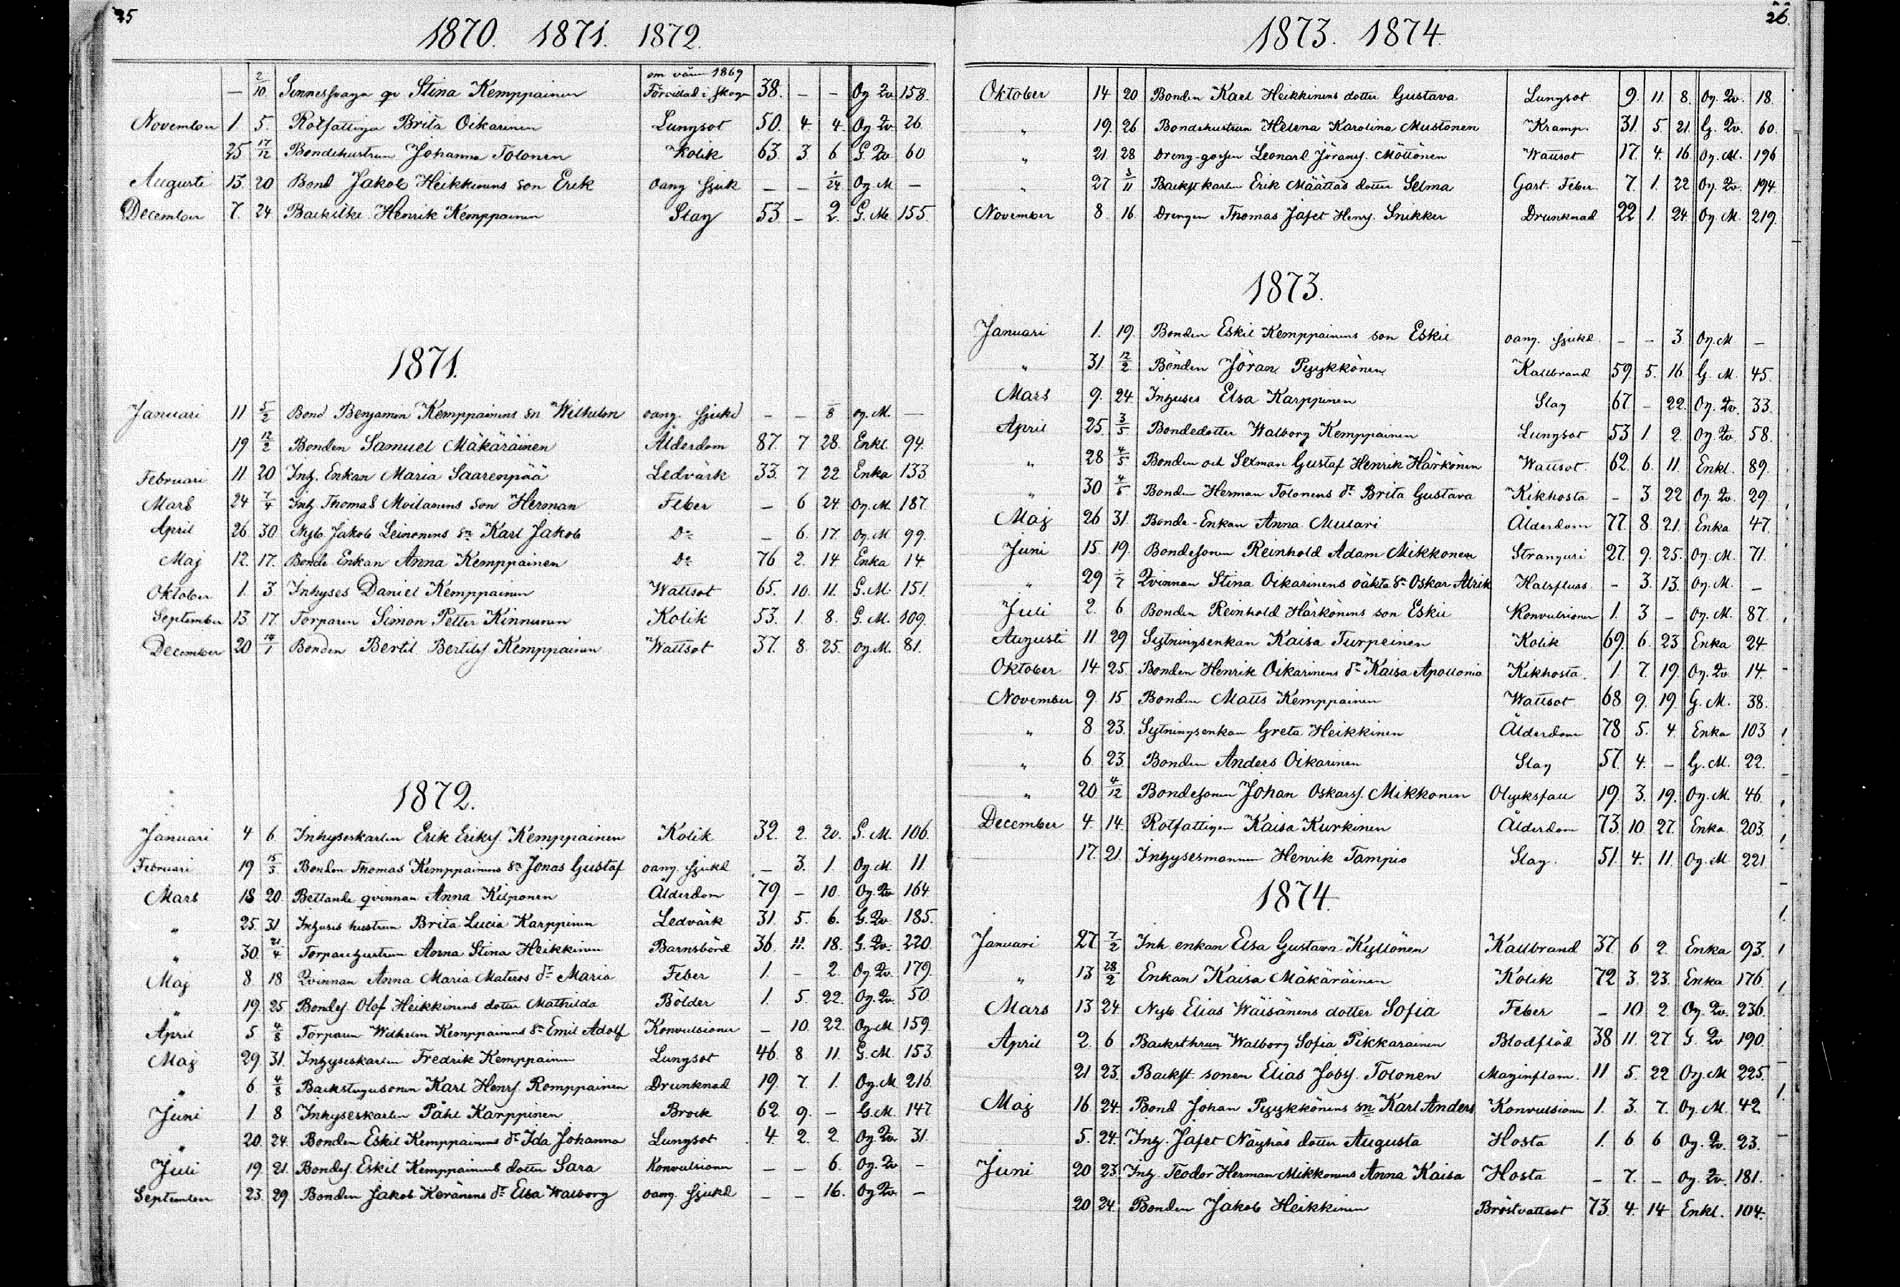 25
1870. 1871. 1872.
— 2/10 Sinnessvaga qv Stina Kemppainen om våren 1869 Förvillad i skogen 38. — — Og Qv. 158.
November 1. 5. Rotfattiga Brita Oikarinen Lungsot 50. 4. 4. Og Qv. 26.
25 17/12 Bondehustrun Johanna Tolonen Kolik 63. 3. 6 G. Qv 60
Augusti 13. 20 Bond Jakob Heikkinens son Erik Oang sjuk — — 1/24 Og M —
December 7. 24 Henrik Kemppainen Slag 53 — 2. G. M. 155.
1871.
Januari 11 5/2 Bond Benjamin Kemppainens sn Wilhelm oang. sjukd — — 8 og. M. —
19 12/2 Bonden Samuel Mäkäräinen Ålderdom 87. 7 28. Enkl. 94.
Februari 11 20 Inh. Enkan Maria Saarenpää Ledvärk 33. 7 22 Enka 133
Mars 24 7/4 Inh Thomas Moilanens son Herman Feber — 6 24. Og. M. 187.
April 26. 30. Nyb. Jakob Leinonens sn Karl Jakob Do — 6. 17. Og. M. 99.
Maj 12. 17. Bonde Enkan Anna Kemppainen Do 76 2. 14 Enka 14
Oktober 1. 3 Inhyses Daniel Kemppainen Wattsot 65. 10. 11. G. M. 151.
September 13 17. Torparen Simon Petter Kinnunen Kolik 53. 1. 8. G. M. 109.
December 20 14/1 Bonden Bertil Bertilsf Kemppainen Wattsot 37. 8. 25. og M. 81.
1872.
Januari 4 6. Inhyseskarlen Erik Eriksf. Kemppainen Kolik 32. 2. 20. G. M. 106.
Februari 19 15/3 Bonden Thomas Kemppainens sn Jonas Gustaf oang. sjukd — 3. 1. Og. M 11.
Mars 18 20. Bettande qvinnan Anna Kilponen Ålderdom 79 — 10. Og. Qv 164
" 25. 31 Inhyses hustrun Brita Lucia Karppinen Ledvärk 31. 5. 6. G. Qv. 185.
" 30 21/4 Torparehustrun Anna Stina Heikkinen Barnsbörd 36. 11. 18. G. Qv. 220.
Maj 8. 18 Qvinnan Anna Maria dr Maria Feber 1. — 2. Og Qv. 179.
" 19. 25 Bondes Olof Heikkinens dotter Mathilda Bölder 1. 5. 22. Og. Qv. 50.
April 5 Torparen Wilhelm Kemppainens sn Emil Adolf Konvulsioner — 10. 22. Og M. 159.
Maj 29 31. Inhyseskarlen Fredrik Kemppainen Lungsot 46. 8. 11. G. M. 153
" 6 Backstugusonen Karl Henrs Romppainen Drunknad 19. 7. 1. Og. M. 216.
Juni 1. 8 Inhyseskarlen Påhl Karppinen Brock 62. 9. — G. M. 147
" 20. 24. Bonden Eskil Kemppainens dr Ida Johanna Lungsot 4. 2. 2. Og Qv. 31.
Juli 19. 21. Bondes Eskil Kemppainens dotter Sara Konvulsioner — — 6. Og. Qv —
September 23. 29. Bonden Jakob Keränens dr Elsa Walborg oang. sjukd — — 16. Og Qv. —
26.
1873. 1874.
Oktober 14 20 Bonden Karl Heikkinens dotter Gustava Lungsot 9. 11. 8. Og. Qv. 18.
" 19. 26 Bondehustrun Helena Karolina Mustonen Kramp. 31. 5. 21. G. Qv. 60.
" 21 28 Dreng-gossen Leonard Jöransf. Möttönen Wattsot 17. 4. 16 Og. M. 196
" 27 3/11 Backst karlen Erik Määttäs dotter Selma Gast. Feber. 7. 1. 22 Og. Qv. 194.
November 8. 16 Drengen Thomas Jafet Henrs. Snikker Drunknad 22 1. 24. Og. M. 219.
1873.
Januari 1. 19. Bonden Eskil Kemppainens son Eskil oang. sjukd. — — 3. Og. M —
" 31. 12/2 Bonden Jöran Pyykkönen Kallbrand 59 5. 16 G. M. 45.
Mars 9. 24. Inhyses Elsa Karppinen Slag 67. — 22. Og. Qv. 33.
April 25. 3/5 Bondedotter Walborg Kemppainen Lungsot 53 1. 2. Og. Qv. 58.
" 28 4/5 Bonden och Sexman Gustaf Henrik Härkönen Wattsot 62. 6. 11. Enkl. 89.
" 30 4/5 Bonden Herman Tolonens dr Brita Gustava Kikhosta — 3. 22 Og. Qv. 29.
Maj 26 31. Bonde-Enkan Anna Mulari Ålderdom 77 8. 21. Enka 47.
Juni 15. 19. Bondesonen Reinhold Adam Mikkonen Stranguri 27. 9. 25. Og. M. 71.
" 29 1/7 Qvinnan Stina Oikarinens oäkta sn Oskar Alrik Halsfluss — 3. 13. Og. M. —
Juli 2. 6 Bonden Reinhold Härkönens son Eskil Konvulsioner 1. 3 — Og. M. 87.
Augusti 11. 29 Sytningsenkan Kaisa Turpeinen Kolik 69. 6. 23 Enka 24
Oktober 14 25. Bonden Henrik Oikarinens dr Kaisa Apollonia Kikhosta. 1. 7. 19. Og. Qv. 14.
November 9. 15 Bonden Matts Kemppainen Wattsot 68 9. 19 G. M. 38.
" 8 23. Sytningsenkan Greta Heikkinen Ålderdom 78 5. 4. Enka 103
" 6. 23. Bonden Anders Oikarinen Slag 57. 4. — G. M. 22.
" 20 4/12 Bondesonen Johan Oskarsf. Mikkonen Olycksfall 19. 3. 19. Og. M. 46.
December 4. 14. Rotfattigen Kaisa Kurkinen Ålderdom 73. 10 27. Enka 203.
17. 21. Inhysesmannen Henrik Tampio Slag. 51. 4. 11. Og. M 221.
1874.
Januari 27 7/2 Inh enkan Elsa Gustava Kyllönen Kallbrand 37. 6 2. Enka 93.
" 13 28/2 Enkan Kaisa Mäkäräinen Kolik 72 3. 23. Enka 176.
Mars 13 24. Nyb Elias Wäisänens dotter Sofia Feber — 10 2 Og. Qv. 236.
April 2. 6 Backsthrun Walborg Sofia Pikkarainen Blodflöd 38 11. 27 G. Qv 190
21 23. Backst sonen Elias Jobsf. Tolonen Maginflam. 11 5. 22 Og. M 225.
Maj 16 24. Bond Johan Pyykkönens sn Karl Anders Konvulsioner 1. 3. 7. Og M. 42
5. 24. Inh. Jafet Näyhäs dotter Augusta Hosta 1. 6 6 Og. Qv. 23.
Juni 20 23. Inh. Teodor Herman Mikkonens Anna Kaisa Hosta — 7. — Og. Qv. 181.
20 24. Bonden Jakob Heikkinen Bröstvattsot 73. 4. 14 Enkl. 104.